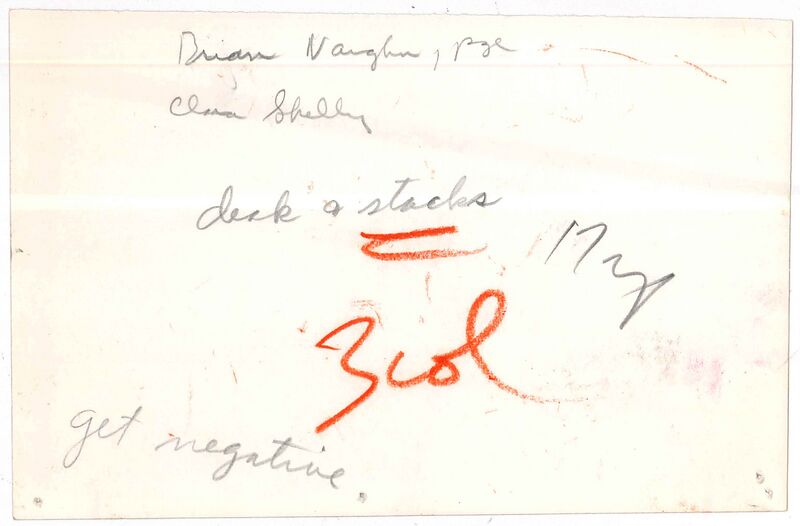 Brian Vaughn, pge
Clara Shelly
desk & stacks
17
3 col
get negative